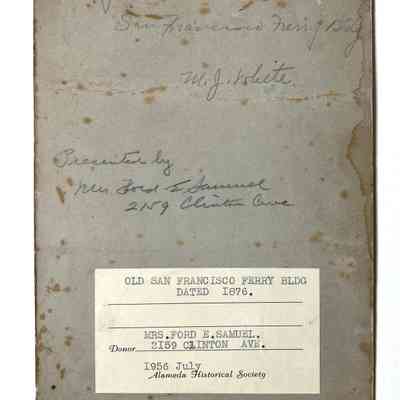 San Francisco Ferry Bldg
M. J. White.
Presented by
Mrs Ford E Samuel
2159 Clinton Ave
OLD SAN FRANCISCO FERRY BLDG
DATED 1876.
MRS.FORD E.SAMUEL.
Donor 2159 CLINTON AVE.
1956 July
Alameda Historical Society